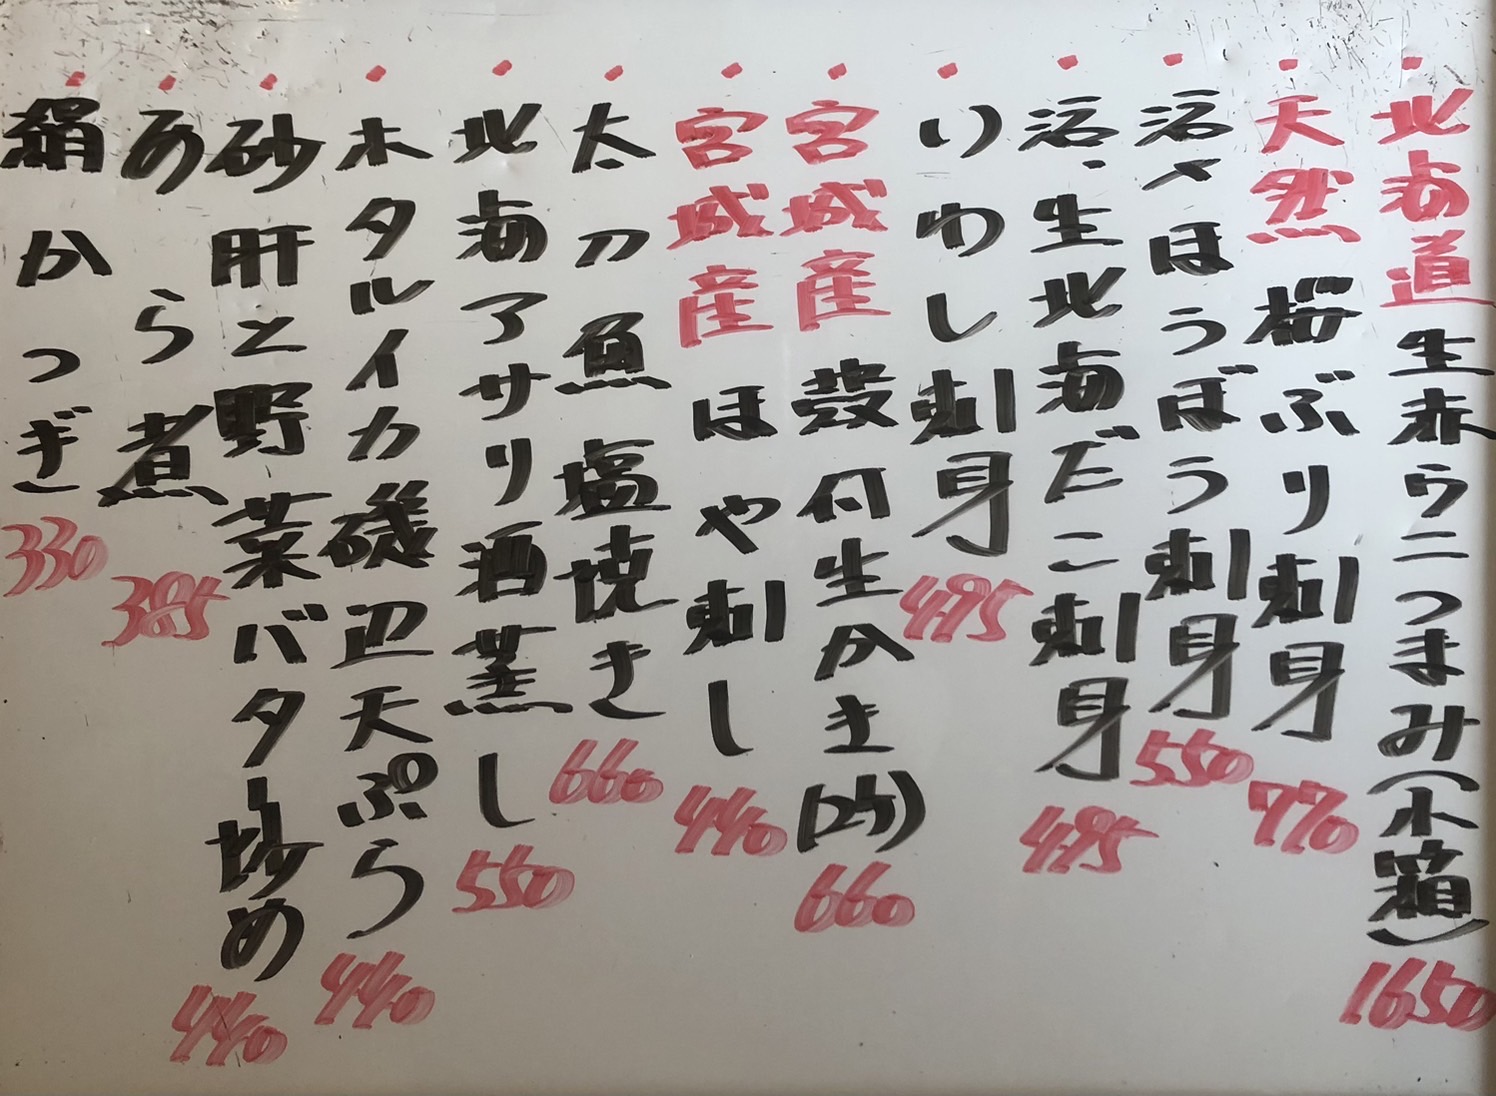 北海道生赤ウニつまみ(小箱) 1650
天然桜ぶり刺身 770
活〆ほうぼう刺身 550
活、生北海だこ刺身 495
いわし刺身 495
宮城産殻付生かき(2ケ) 660
宮城産ほや刺し 440
太刀魚塩焼き 660
北海アサリ酒蒸し 550
ホタルイカ磯辺天ぷら 440
砂肝と野菜バター炒め 440
あら煮 385
絹かつぎ 330